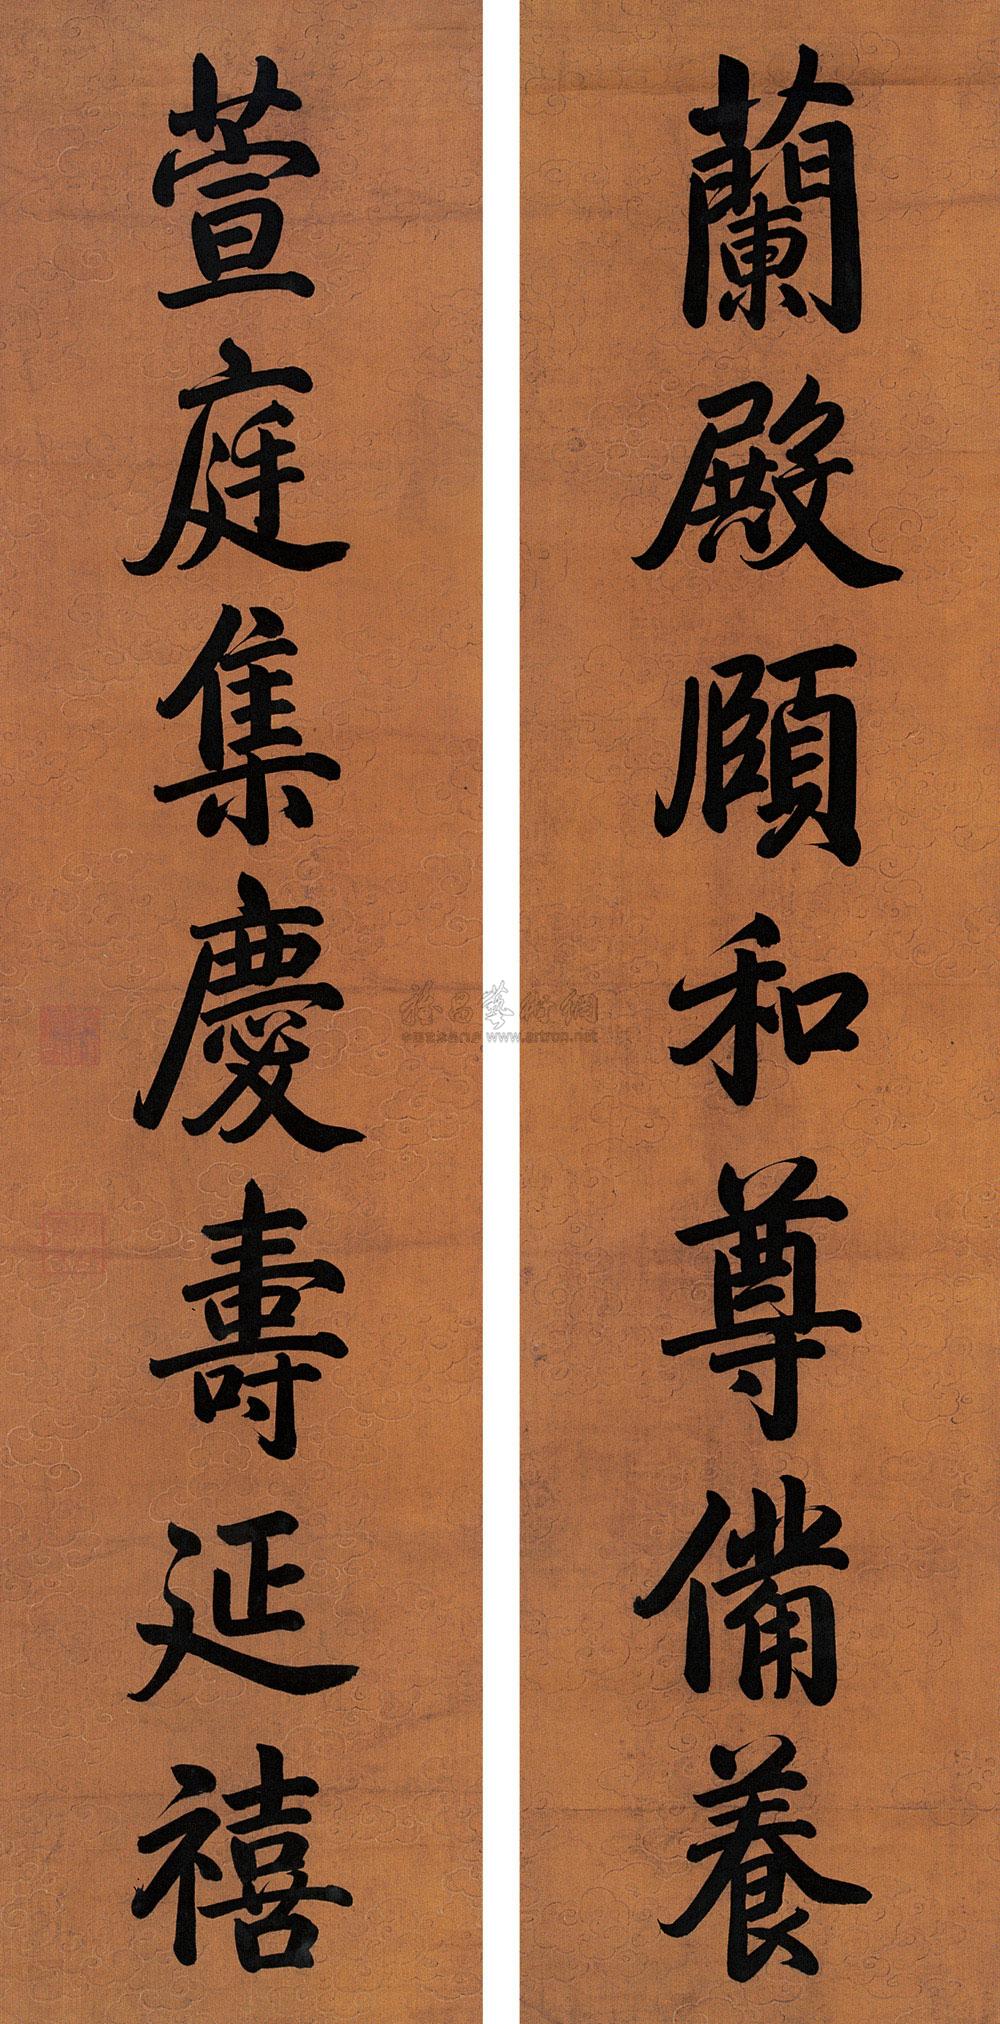 蘭殿頤和尊備養
萱庭集慶壽延禧
雅昌藝術網
www.artron.net